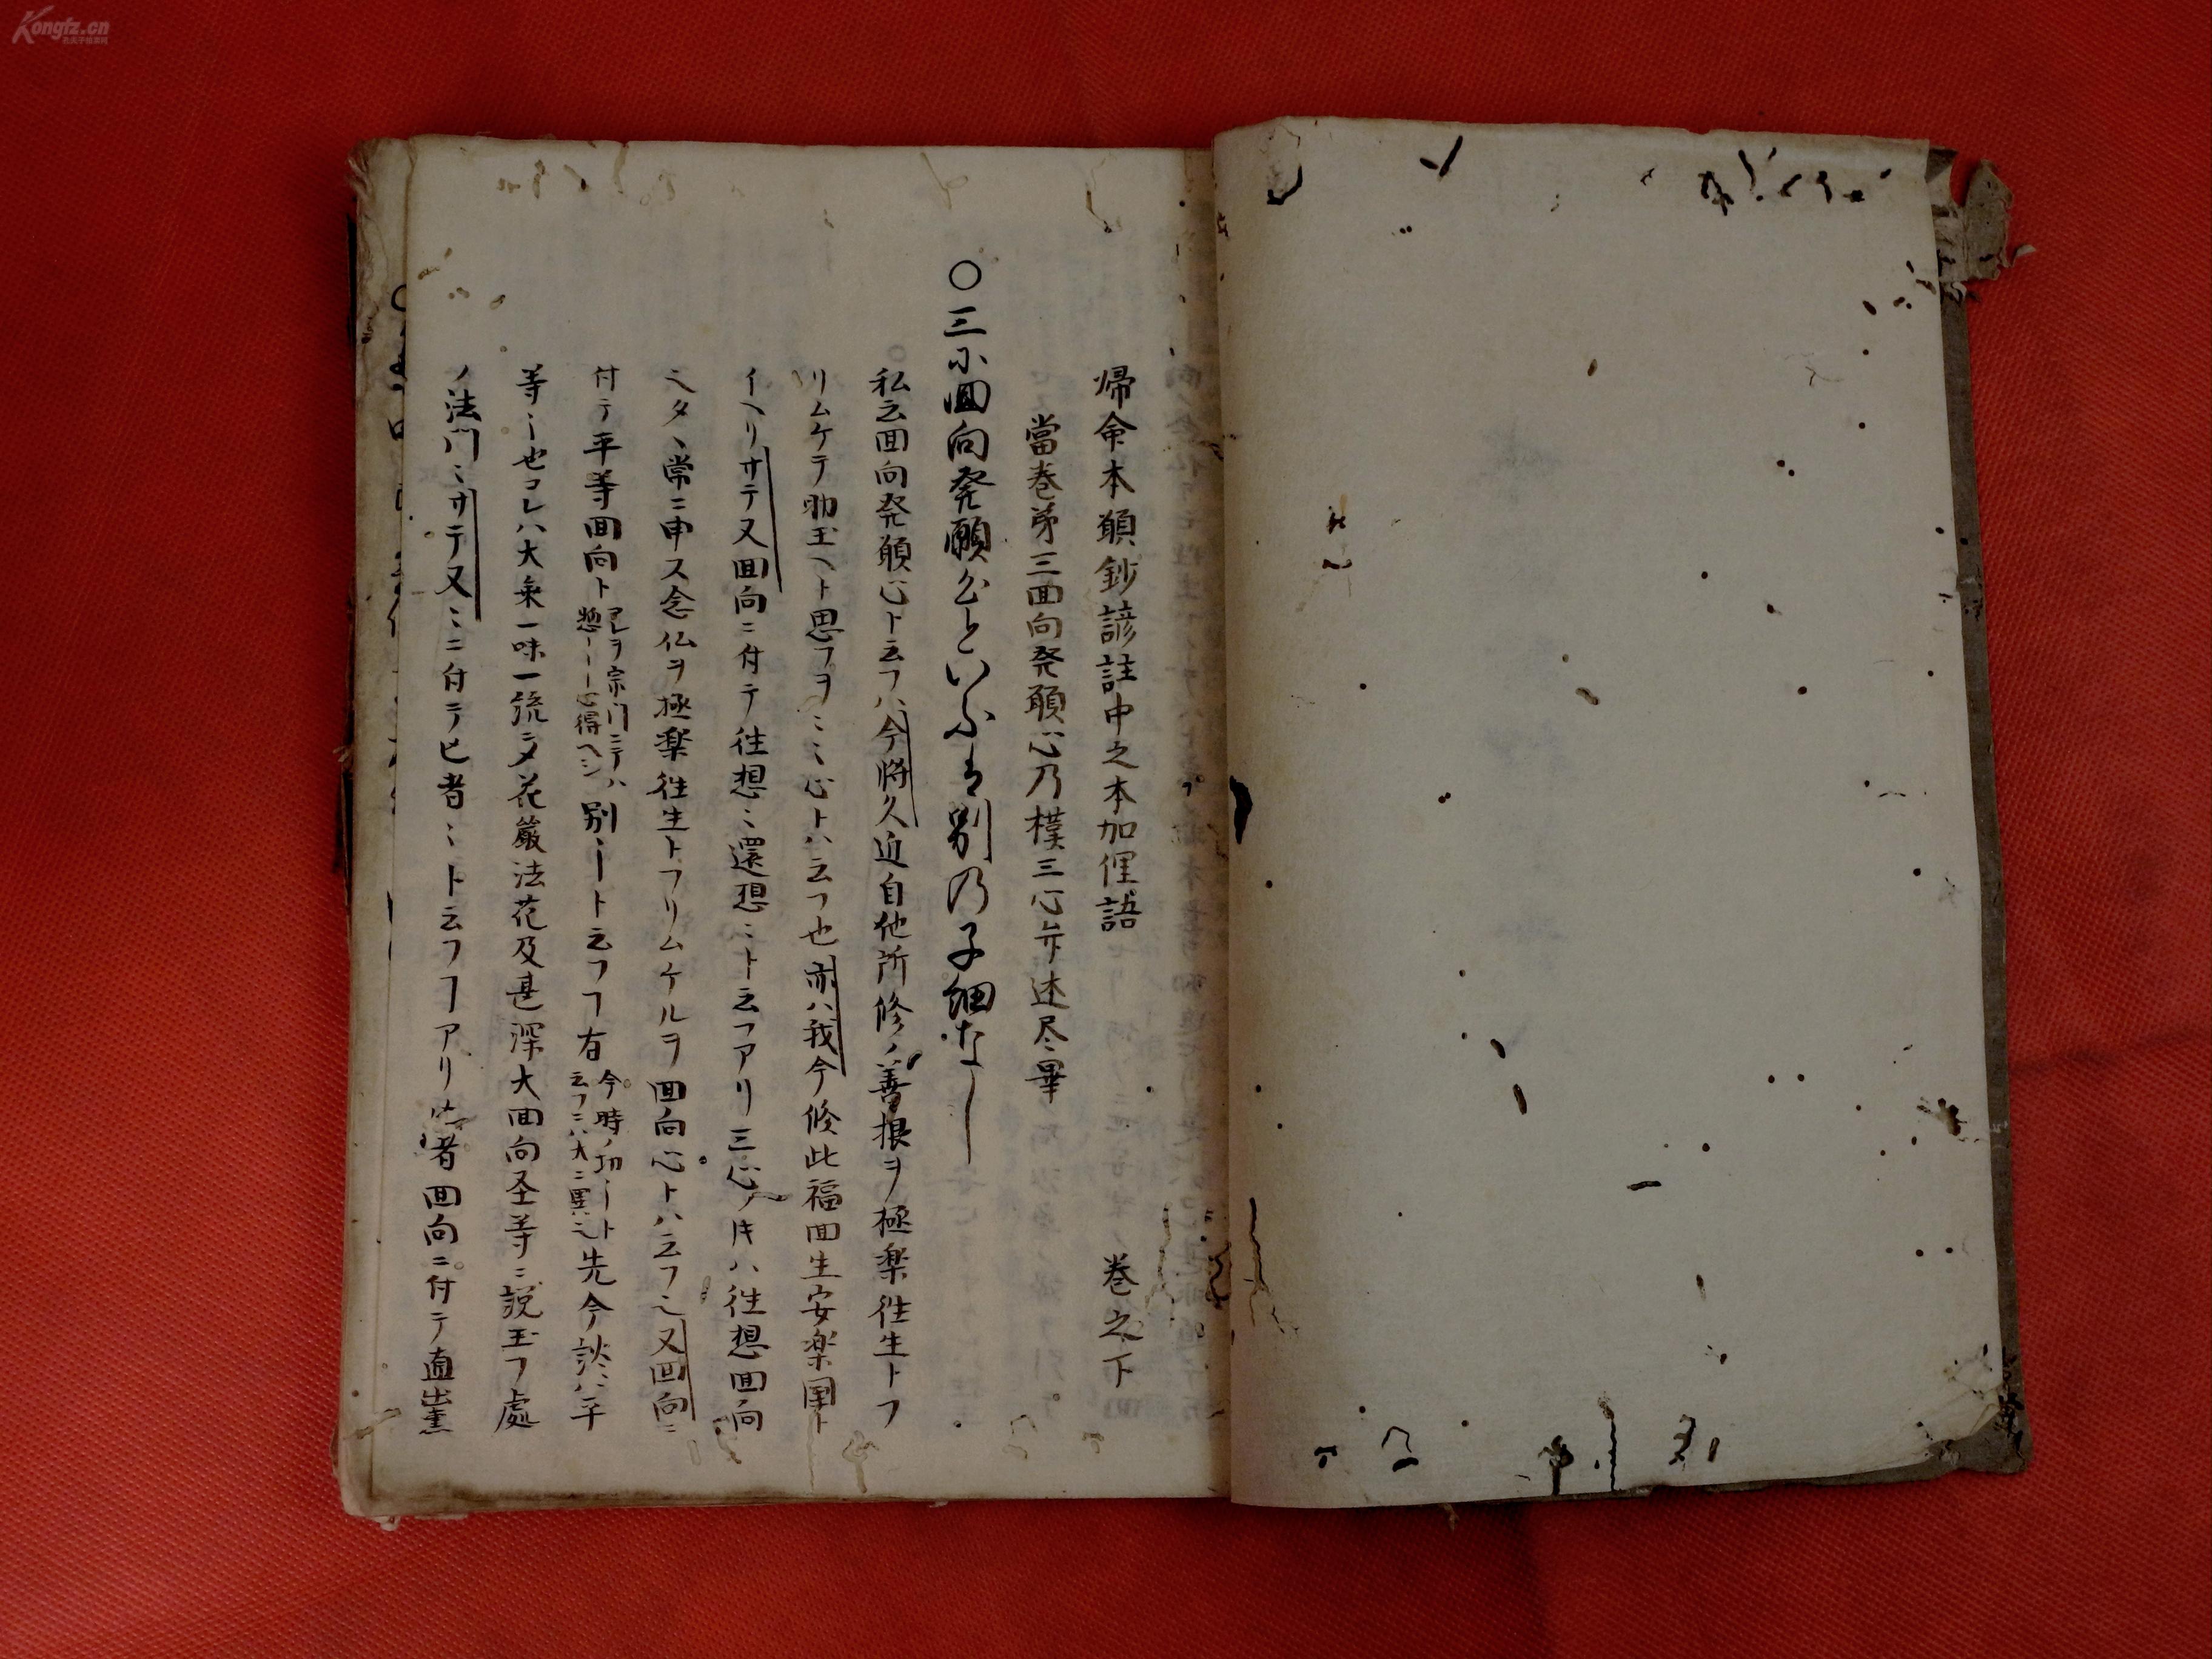 帰命本願鈔諺註中之本加俚語 巻之下
當巻第三回向発願心乃様三心弁述尽畢
〇三小回向発願心といふハ別の子細なし
私云回向発願心ト云フハ今将久近自他所修ノ善根ヲ極楽往生トフ
リムケテ助玉ヘト思フヲミミ心トハ云フ也亦ハ我今修此福回生安楽国ト
イヘリサテ又回向ニ付テ往想ミ還想ミト云フアリ三心ノ時ハ往想回向
ミタヽ常ニ申ス念仏ヲ極楽往生トフリムケルヲ回向心トハ云フ也又回向ニ
付テ平等回向ト是ヲ宗門ニテハ惣ーー心得ヘシ別ーート云フフ有今時ノ云フニハ大ニ異也先今談ハ平
等ー也コレハ大乗一味一統シタ花厳法花及甚深大回向圣等ニ説玉フ處
ノ法門ミサテ又ミニ付テ已者ミト云フフアリ者回向ニ付テ直出熏
Kongfz.cn